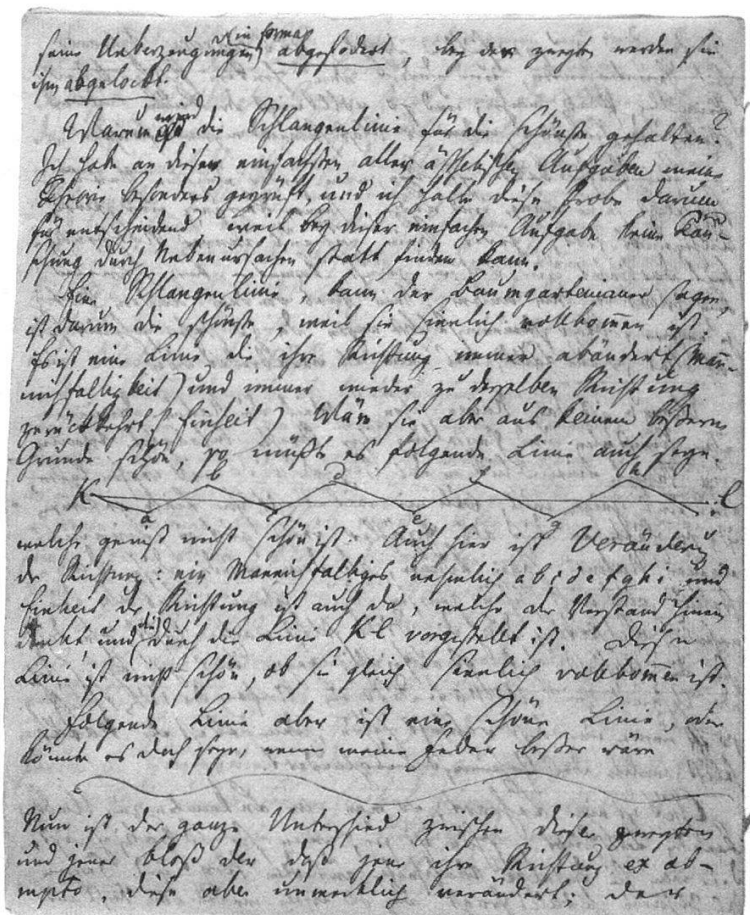 ein forma
seine Ueberzeugungen abgefodert, bey der zweyten werden sie
ihm abgelockt.
Warum wird die Schlangenlinie für die schönste gehalten?
Ich habe an dieser einfachsten aller ästhetischen Aufgaben meine
Theorie besonders geprüft, und ich halte diese Probe darum
für entscheidend, weil bey dieser einfachen Aufgabe keine Täu-
schung durch Nebenursachen statt finden kann.
Eine Schlangenlinie, kann der Baumgartenianer sagen,
ist darum die schönste, weil sie sinnlich vollkommen ist.
Es ist eine Linie, die ihre Richtung immer abändert (Man-
nichfaltigkeit) und immer wieder zu derselben Richtung
zurückkehrt (Einheit) Wäre sie aber aus keinem bessern
Grunde schön, so müßte es folgende Linie auch seyn.
K a b d e f g h l
welche gewiß nicht schön ist. Auch hier ist Veränderung
der Richtung: ein Mannichfaltiges nehmlich a b c d e f g h i und
Einheit der Richtung ist auch da, welche der Verstand hinein
denkt und die durch die Linie Kl vorgestellt ist. Diese
Linie ist nicht schön, ob sie gleich sinnlich vollkommen ist.
Folgende Linie aber ist eine schöne Linie, oder
könnte es doch seyn, wenn meine Feder besser wäre
Nun ist der ganze Unterschied zwischen dieser zweyten
und jener bloß der daß jene ihre Richtung ex ab-
rupto, diese aber unmerklich verändert; der